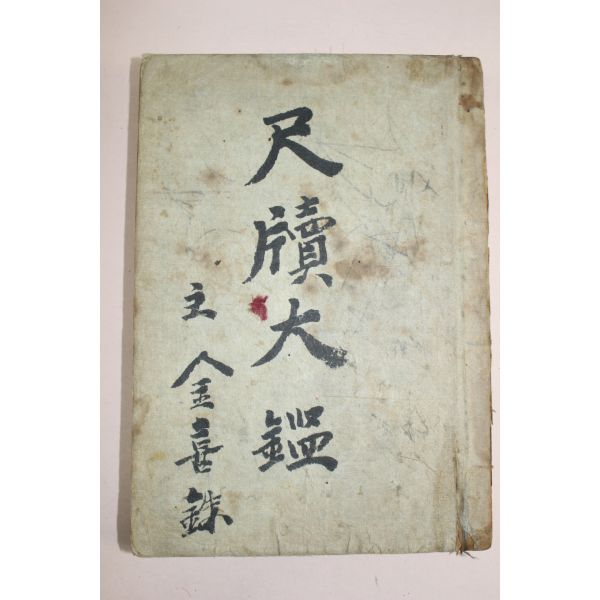 尺牘大鑑
主 金喜銖